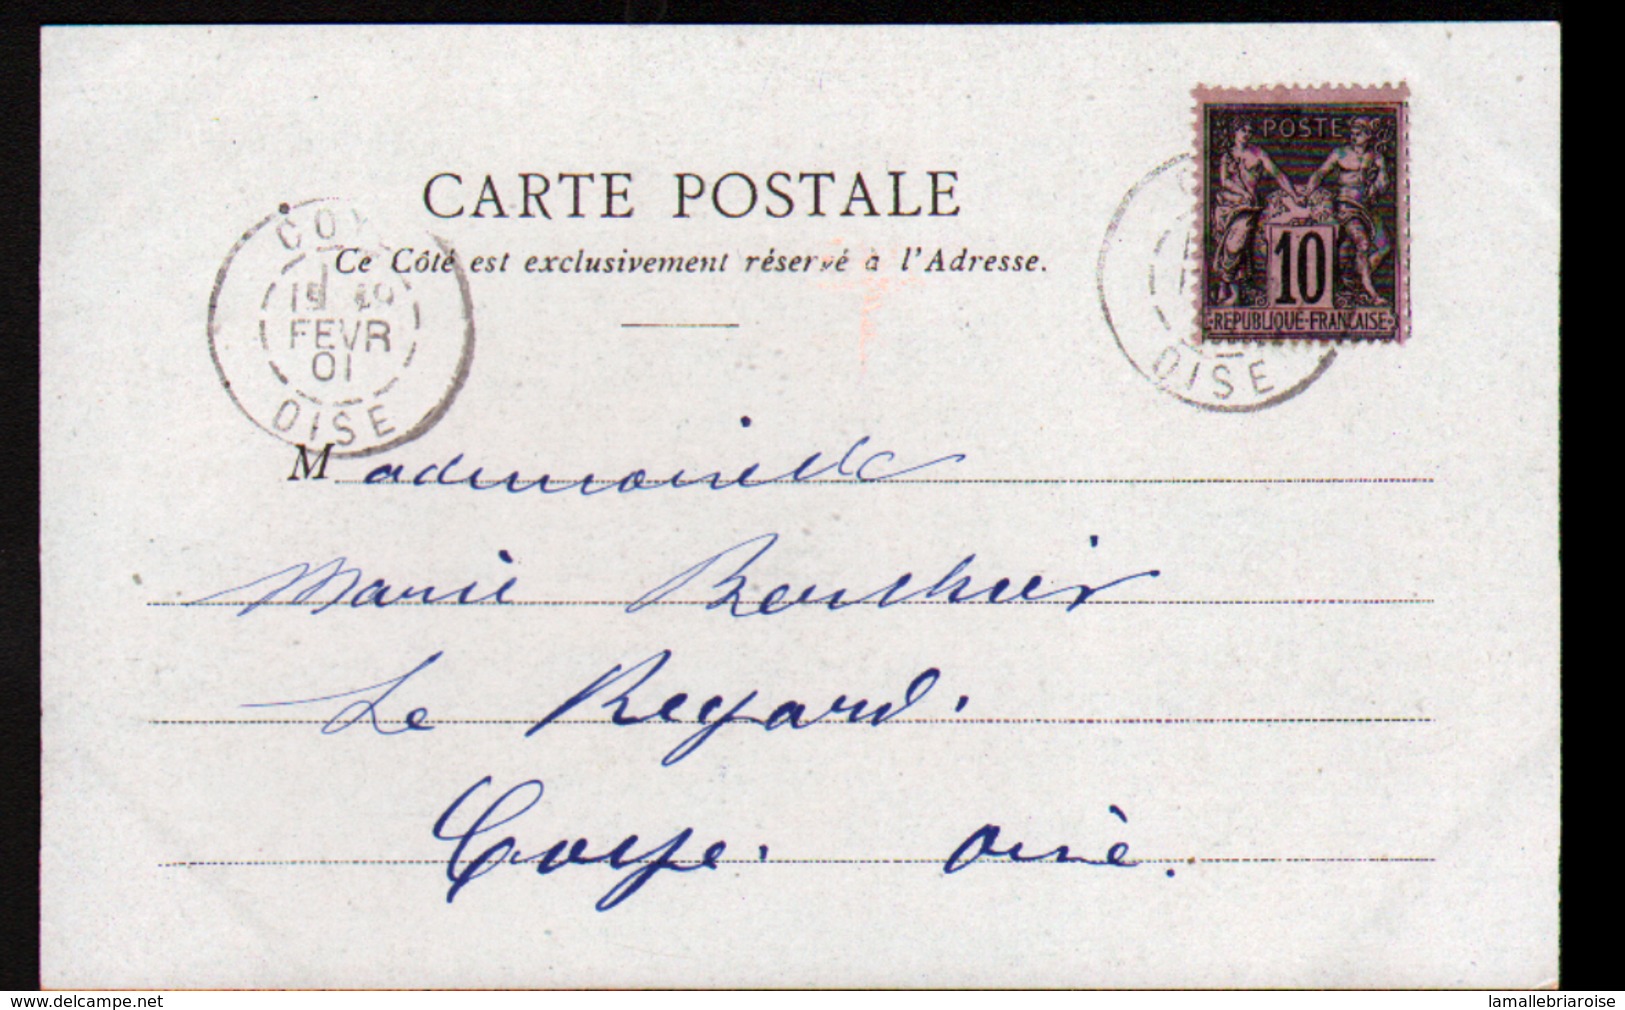 CARTE POSTALE
Ce Côté est exclusivement réservé à l'Adresse.
POSTE
10
REPUBLIQUE-FRANCAISE
COY
FEVR
01
OISE
OISE
Mademoiselle
Marie Bouthier
Le Regard.
Coye. Oise.
www.delcampe.net
lamallebriaroise